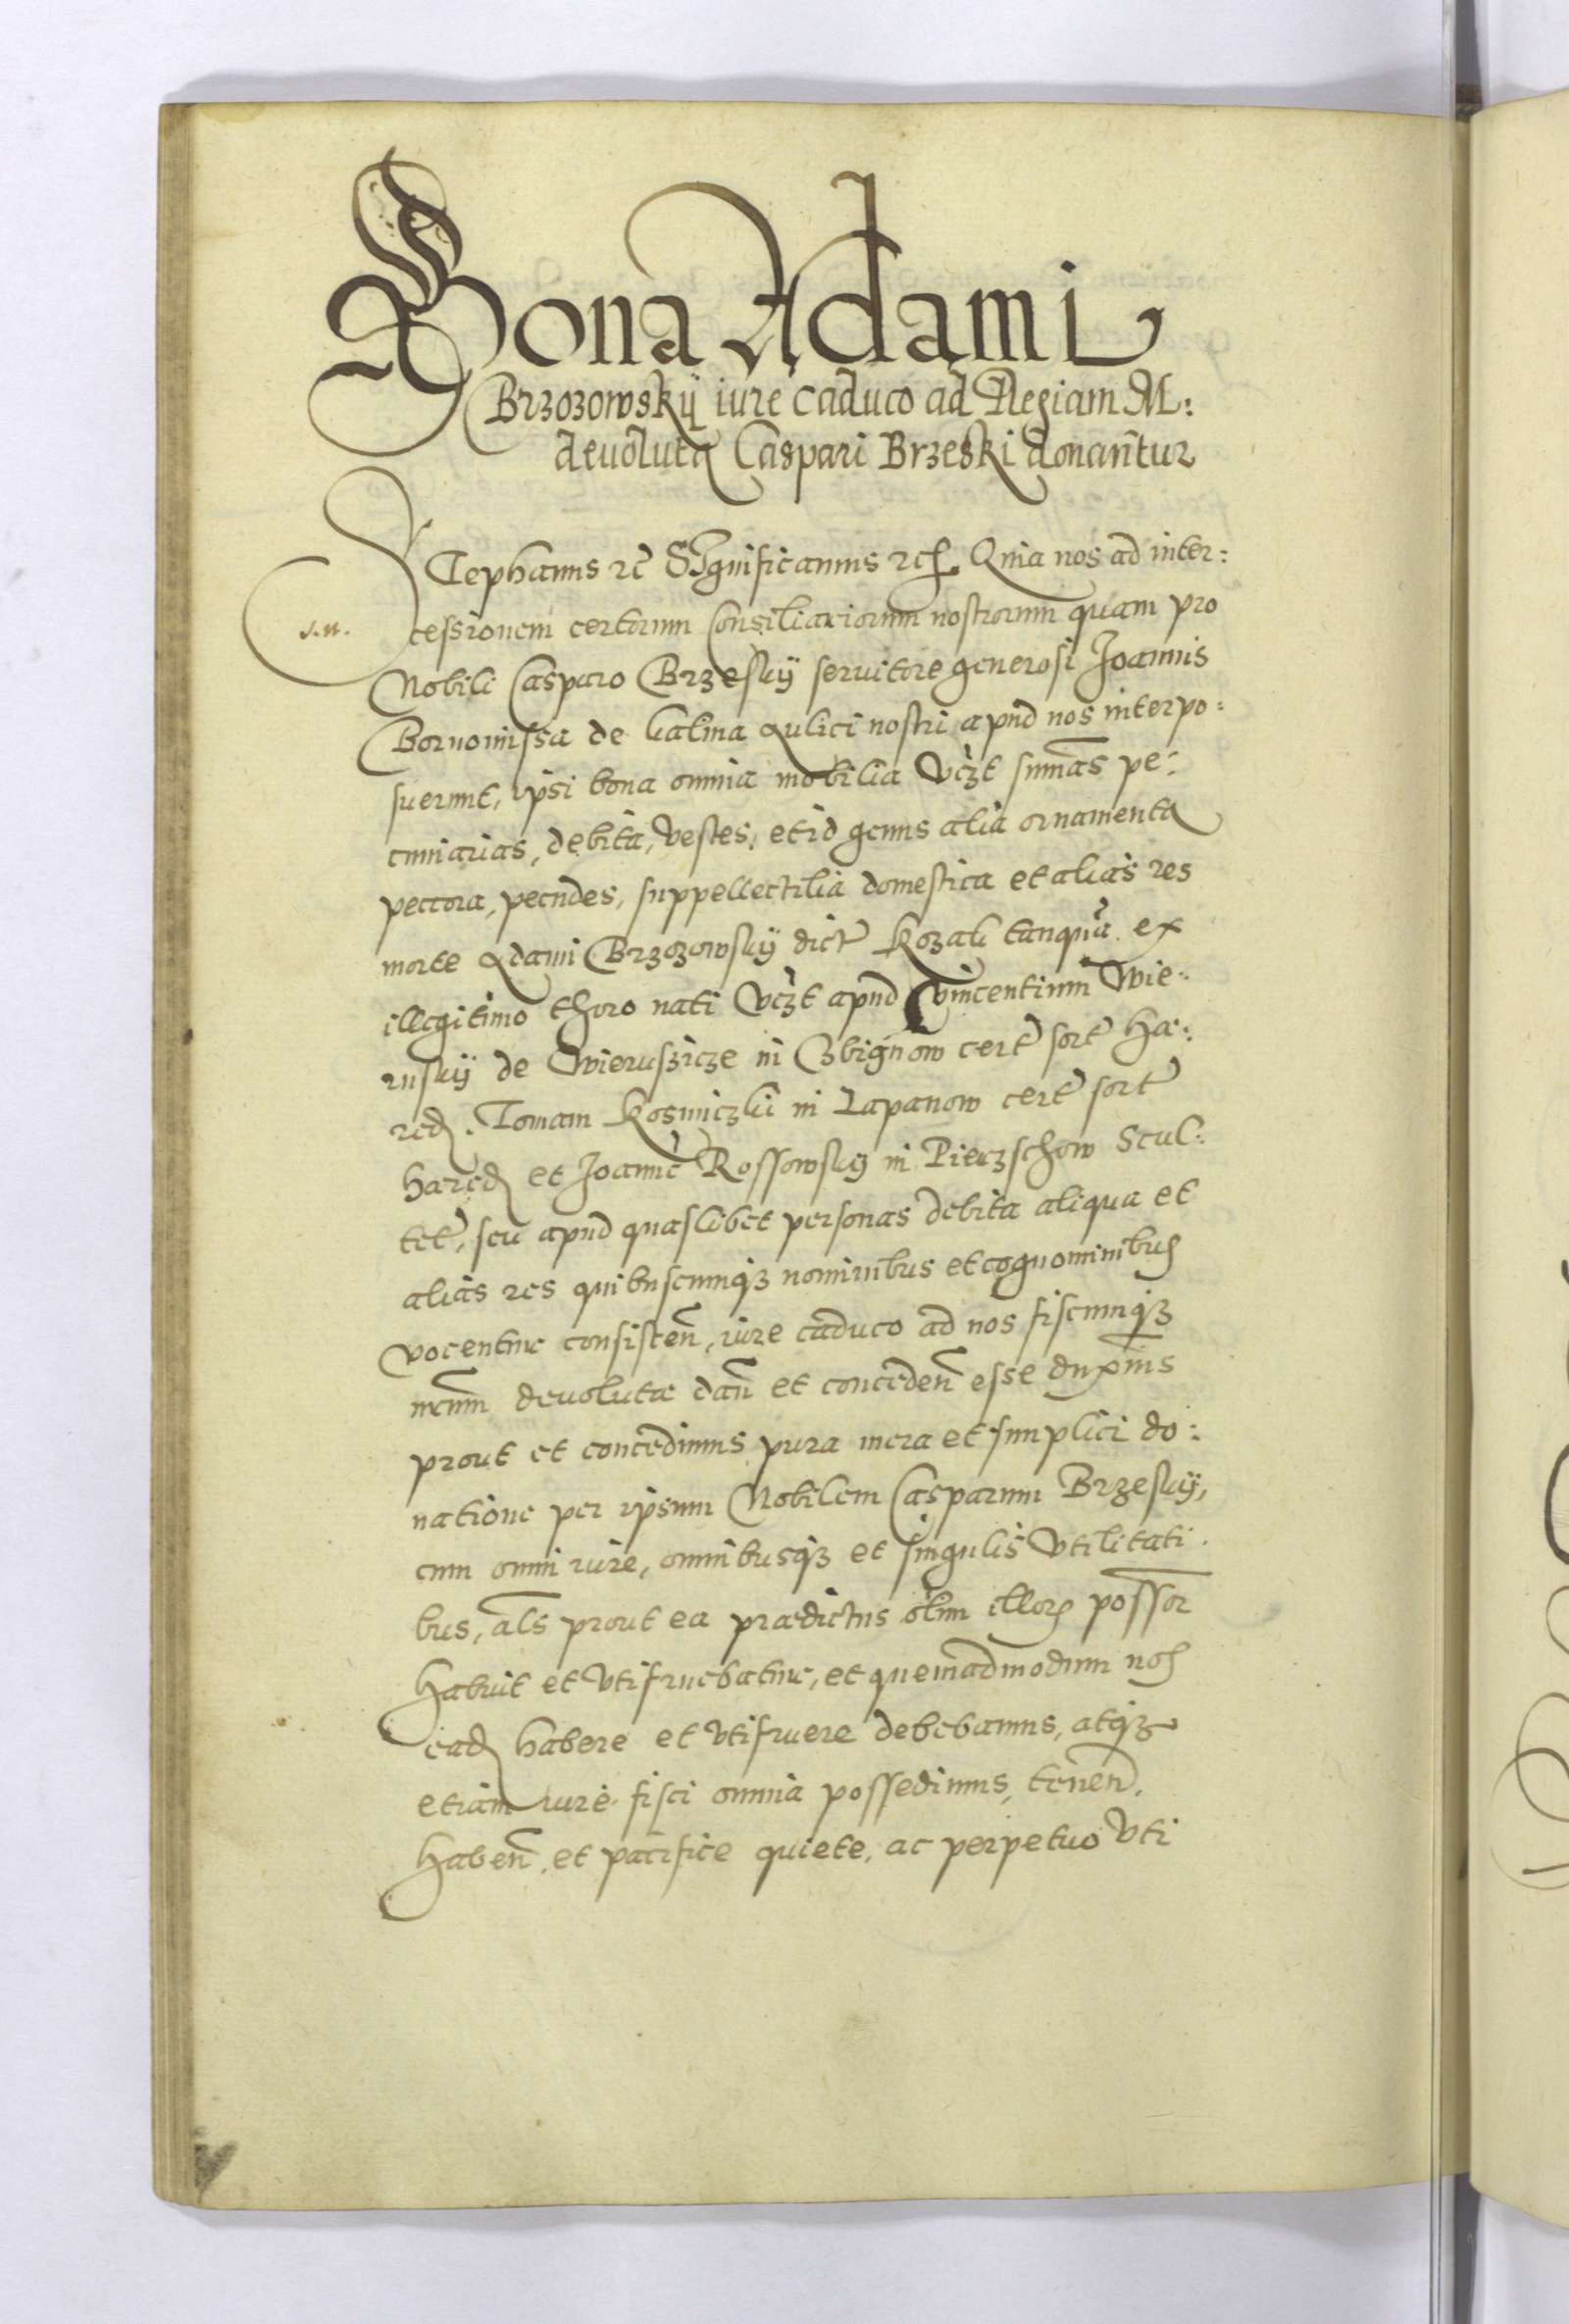 Bona Adami
Brzozowskÿ iure caduco ad Regiam M:
deuoluta Caspari Brzeski donantur
STephanus rē SIgnificamus rē Quia nos ad inter:
s.n.
cessionem certorum Consiliariorum nostrorum quam pro
Nobili Casparo Brzeskÿ seruitore generosi Joannis
de Aulici nostri apud nos interpo:
suerunt, ipsi bona omnia mobilia vczt sum̄as pe:
cuniarias, debita, vestes, et id genus alia ornamenta
peccora, pecudes, suppellectilia domestica et alias res
morte Adami Brzozowskÿ dict Kozak tanquā ex
illegitimo thoro nati vczt apud Vincentium Wie:
ruskÿ de Wieruszicze in Zbignow cert sort hæ:
red. Tomam Kosmiczki in Lapanow cert sort
hæred et Joannē Rossowskÿ in Pierzchow Scul:
tet, seu apud quaslibet personas debita aliqua et
alias res quibuscunqz nominibus et cognominibus
vocentur consisteñ, iure caduco ad nos fiscumqz
nr̄um deuolutæ dañ et concedeñ esse duximus
prout et concedimus pura mera et simplici do:
natione per ipsum Nobilem Casparum Brzeskÿ,
cum omni iure, omnibusqz et singulis vtilitati:
bus, als prout ea prædictus olim illor possor
habuit et vtifruebatur, et quemadmodum nos
ead habere et vtifruere debebamus, atqz
etiam iure fisci omnia possedimus, teneñ.
habeñ, et pacifice quiete, ac perpetuo vti